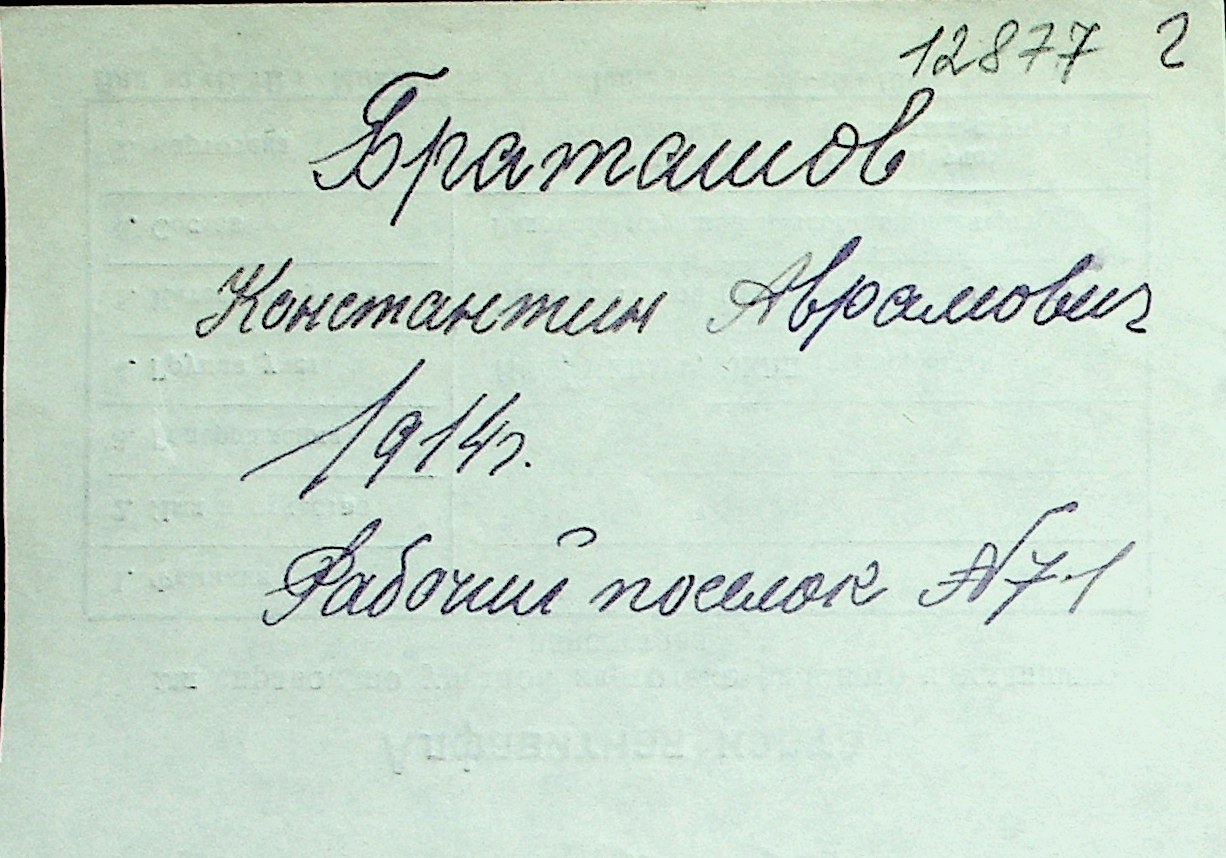 12877 г
Браташов
Константин Аврамович
1914г.
Рабочий поселок №71